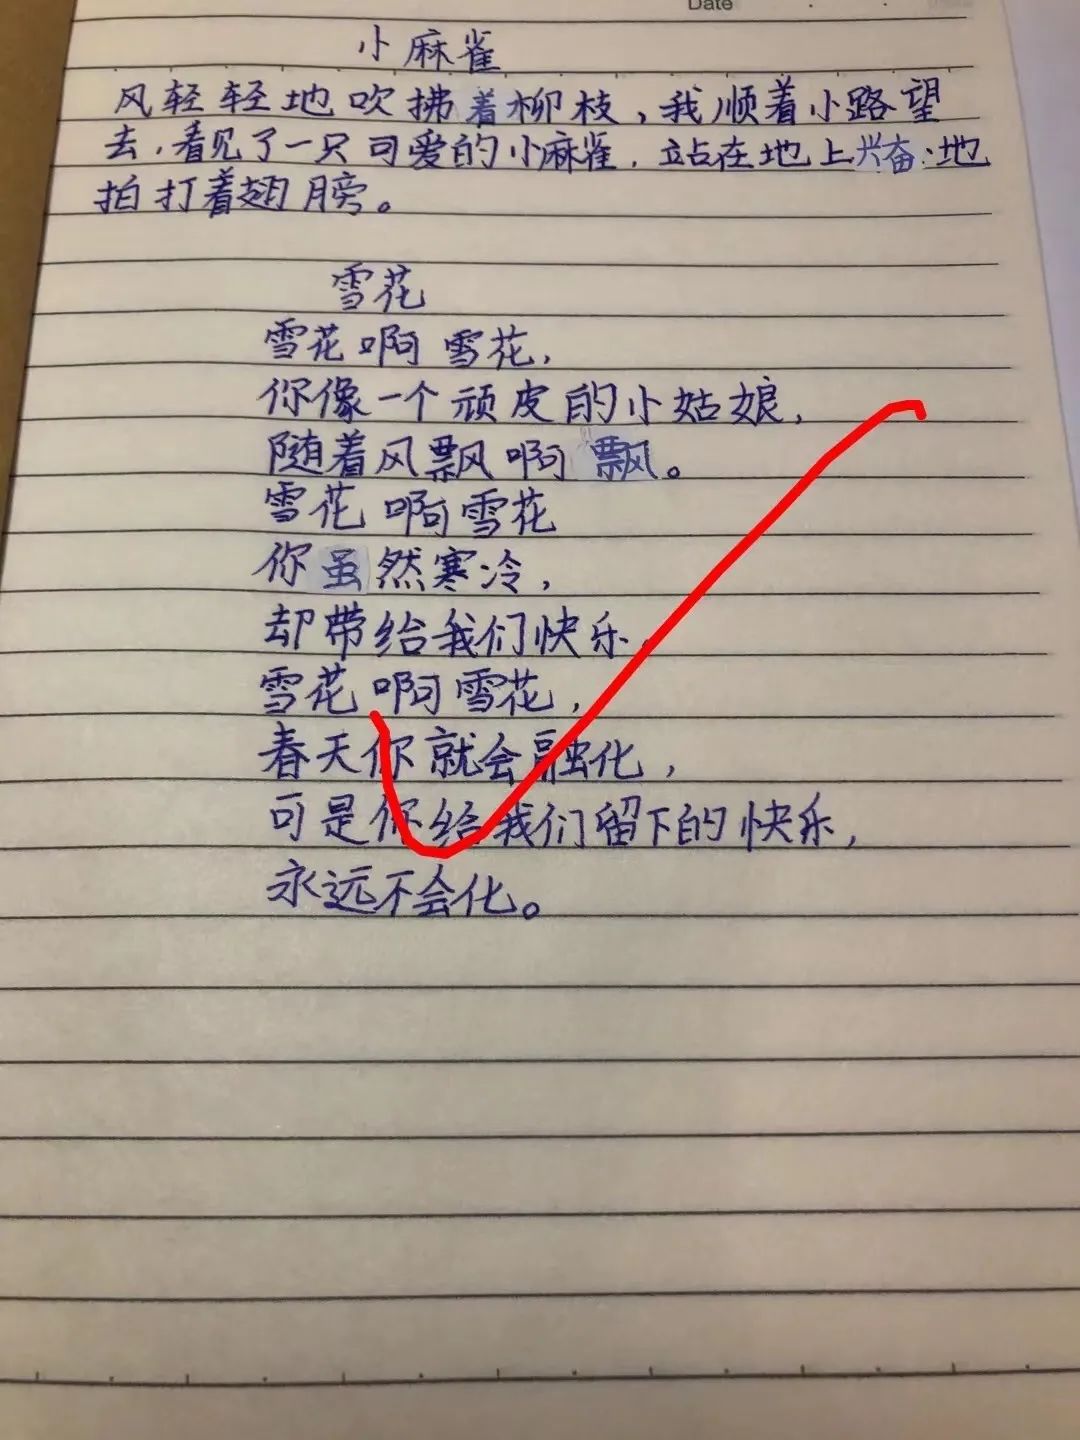 Date
小麻雀
风轻轻地吹拂着柳枝,我顺着小路望
去,看见了一只可爱的小麻雀,站在地上兴奋地
拍打着翅膀。
雪花
雪花啊雪花,
你像一个顽皮的小姑娘,
随着风飘啊飘。
雪花啊雪花
你虽然寒冷,
却带给我们快乐,
雪花啊雪花,
春天你就会融化,
可是你给我们留下的快乐,
永远不会化。